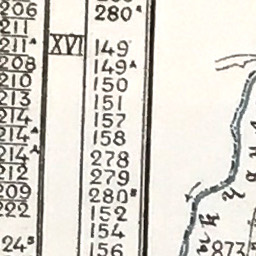 206
211
211ᴬ
208
210
213
214
214ᴬ
214ᴬ
212
209
222
24ᴮ
XVI
280ᴬ
149
149ᴬ
150
151
157
158
278
279
280ᴮ
152
154
156
873